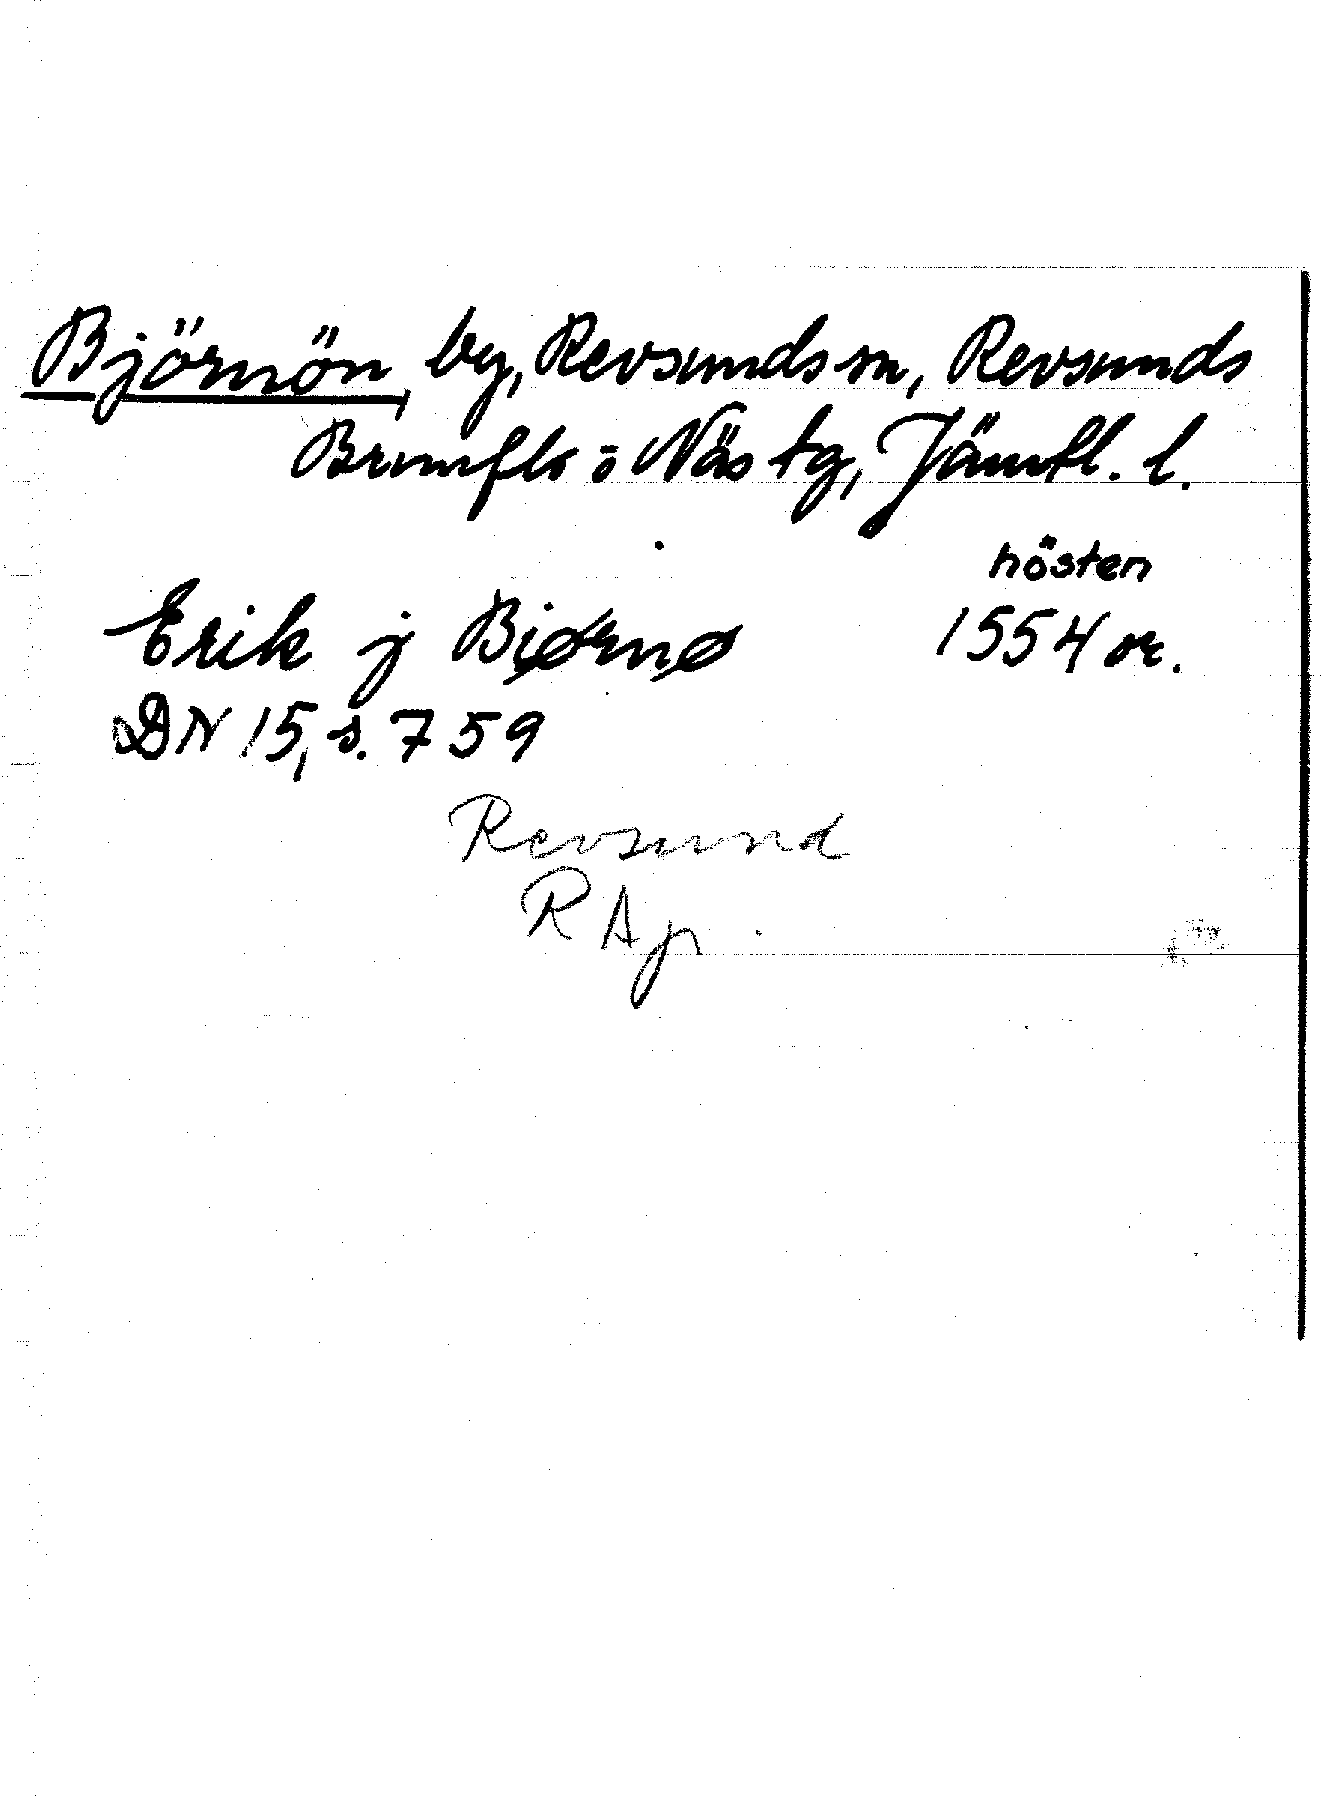 Björnön, by, Revsunds sn, Revsunds
Brunflo o Näs tg, Jämtl. l.
hösten
Erik j Biørnø 1554 or.
DN 15, s. 759
Revsund
RAp